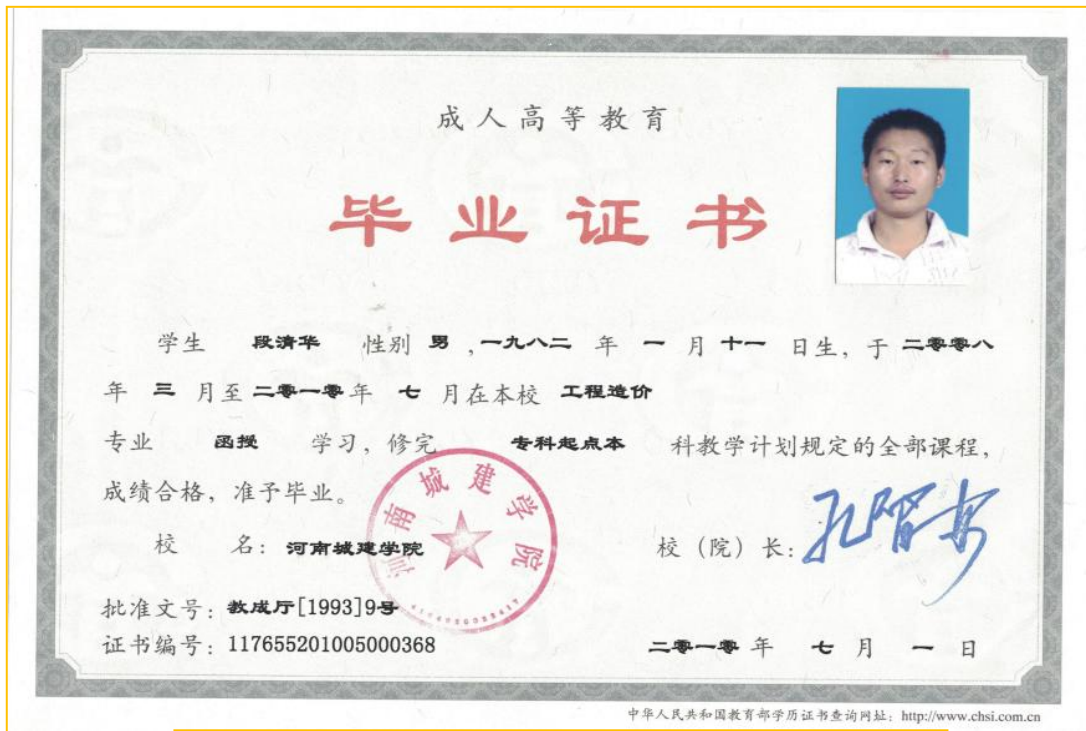 成人高等教育
毕业证书
学生 段清华 性别 男 ,一九八二 年 一 月 十一 日生, 于 二零零八
年 三 月至 二零一零 年 七 月在本校 工程造价
专业 函授 学习, 修完 专科起点本 科教学计划规定的全部课程,
成绩合格, 准予毕业。
河南城建学院
校 名: 河南城建学院 校 (院) 长:
批准文号: 教成厅[1993]9号
证书编号: 117655201005000368 二零一零 年 七 月 一 日
中华人民共和国教育部学历证书查询网址: http://www.chsi.com.cn